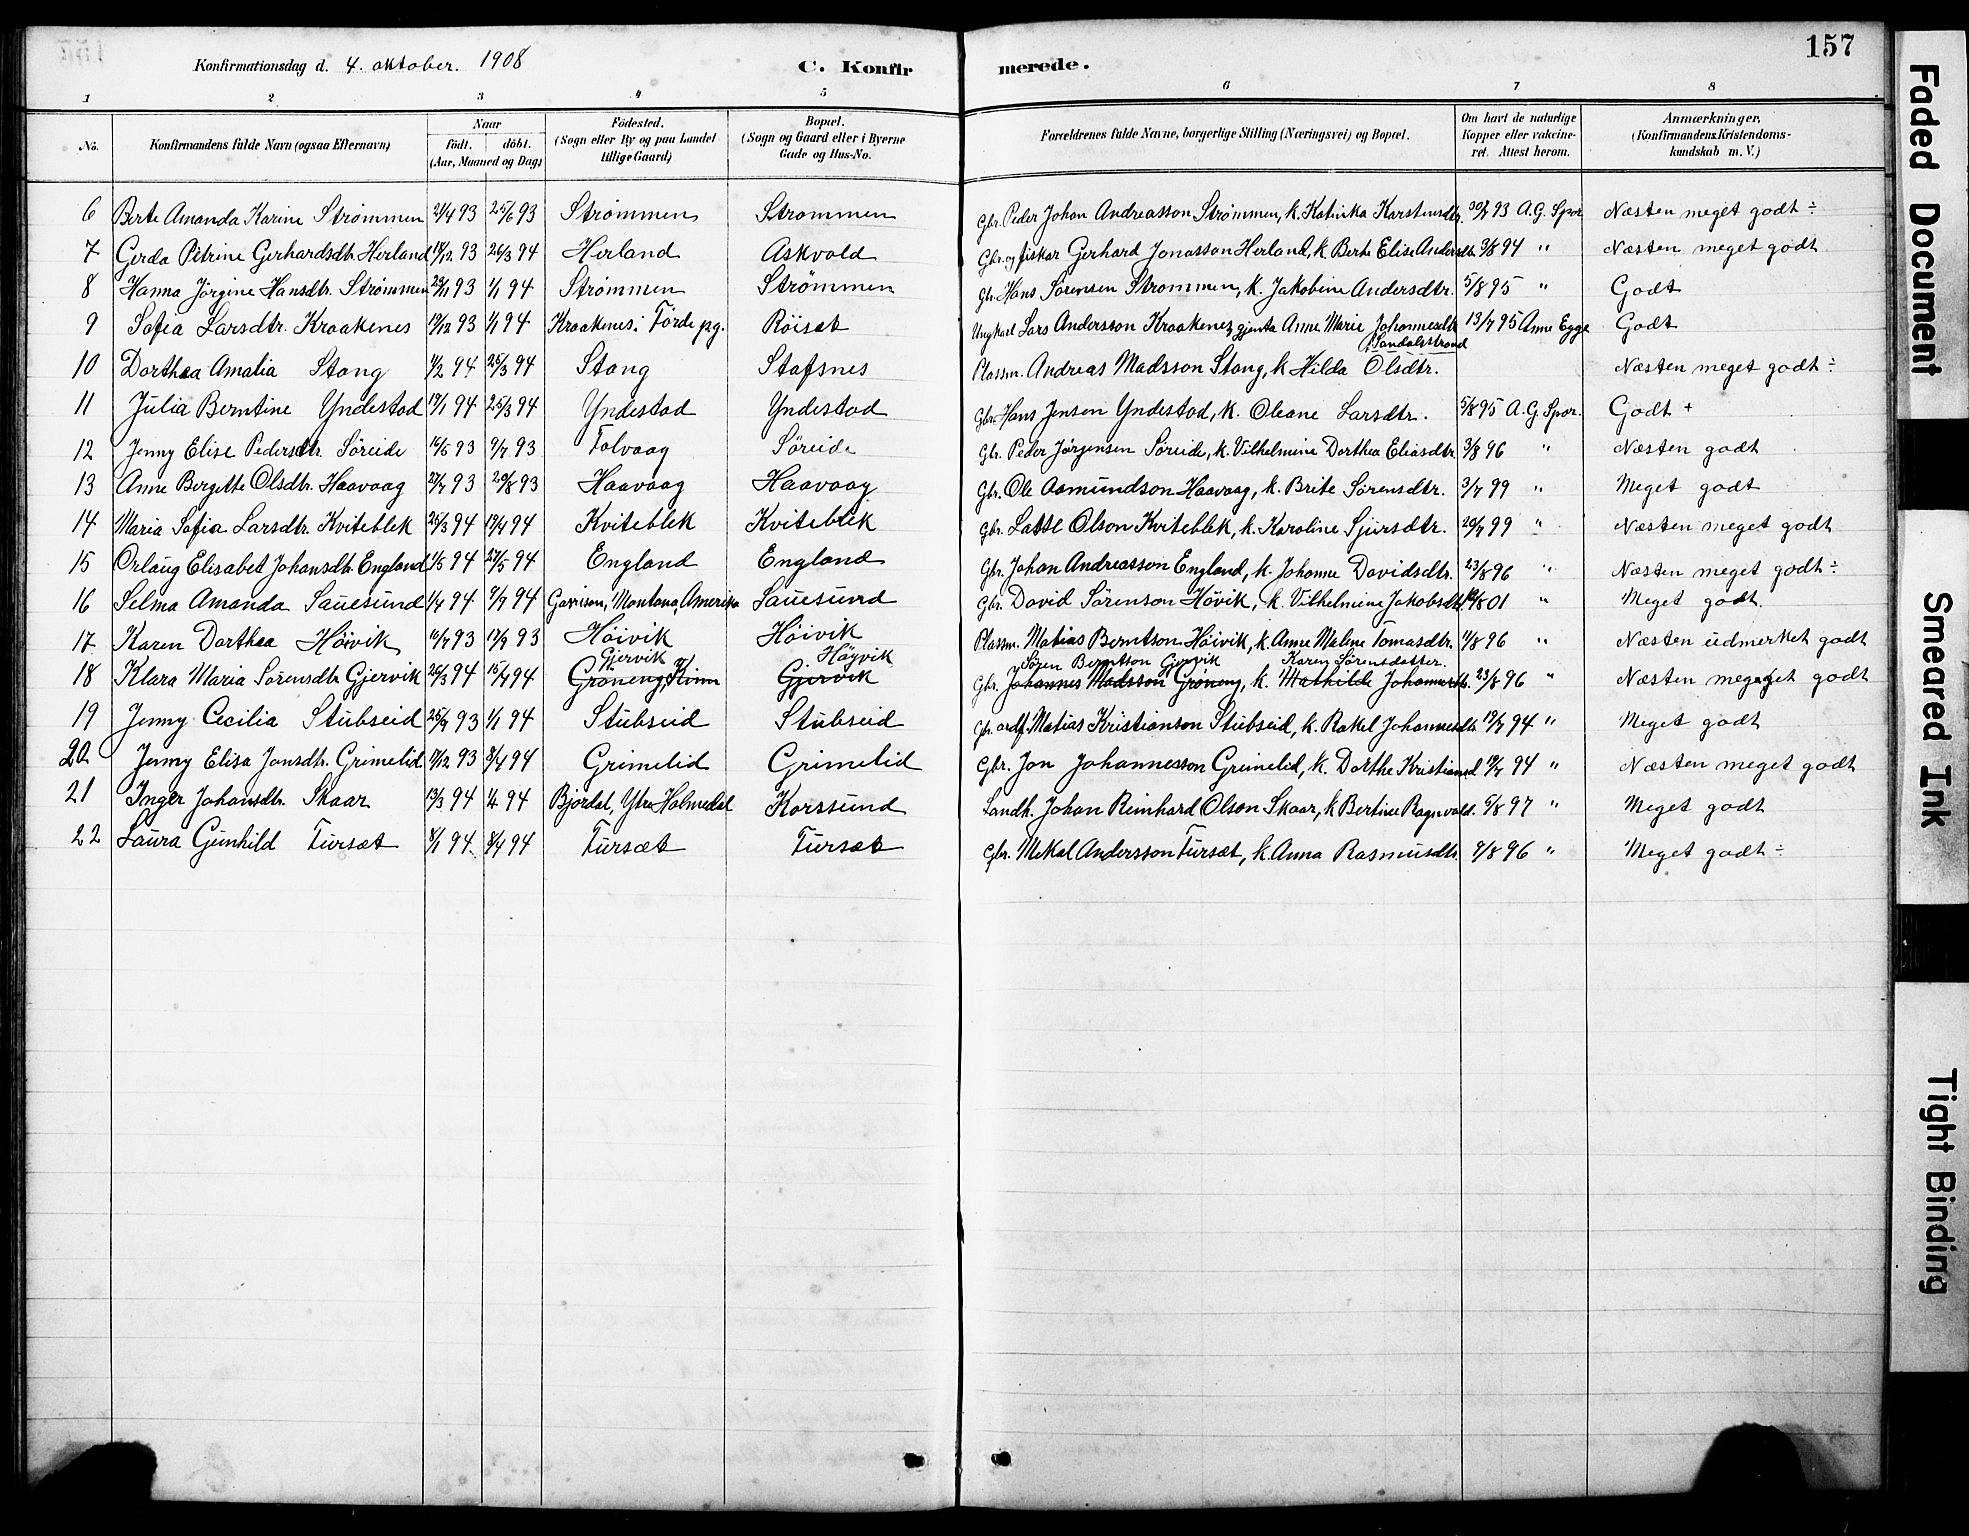 157
Konfirmationsdag d. 4. oktober. 1908 C. Konfirmerede.
1 2 3 4 5 6 7 8
No. Konfirmandens fulde Navn (ogsaa Efternavn) Naar født. døbt. (Aar, Maaned og Dag) Födested. (Sogn eller By og paa Landet tillige Gaard) Bopæl. (Sogn og Gaard eller i Byerne Gade og Hus-No. Forældrenes fulde Navne, borgerlige Stilling (Næringsvei) og Bopæl. Om havt de naturlige Kopper eller vakcineret. Attest herom. Anmærkninger, (Konfirmandens Kristendomskundskab m. V.)
6 Berte Amanda Karine Strømmen 2/4 93 25/6 93 Strømmen Strømmen Gbr. Peder Johan Andreasson Strømmen, k. Katinka Karstensdtr. 30/7 93 A.G. Spor Næsten meget godt ÷
7 Gerda Petrine Gerhardsdtr. Herland 14/12 93 26/3 94 Herland Askvold Gbr. og fisker Gerhard Jonasson Herland, k Berte Elise Andersdtr. 3/8 94 " Næsten meget godt
8 Hanna Jørgine Hansdtr. Strømmen 29/11 93 1/1 94 Strømmen Strömmen Gbr. Hans Sørensen Strømmen, k. Jakobine Andersdtr. 5/8 95 " Godt
9 Sofia Larsdtr. Kraakenes 19/12 93 1/1 94 Kraakenes i Förde pg. Röiset Ungkarl Lars Andersson Kraakenes, gjenta Anne Marie Johannesdtr. Sandalsstrand 13/7 95 Anne Egge Godt
10 Dorthea Amalia Stang 1/2 94 25/3 94 Stang Stafsnes Plassm. Andreas Madsson Stang, k Hilda Olsdtr. Næsten meget godt ÷
11 Julia Berntine Yndestad 17/1 94 25/3 94 Yndestad Yndestad Gbr. Hans Jensen Yndestad, k. Oleane Larsdtr. 5/8 95 A.G. Spor. Godt +
12 Jenny Elise Pedersdtr. Söreide 16/5 93 9/7 93 Tolvaag Söreide Gbr. Peder Jørgensen Søreide, k. Vilhelmine Dorthea Eliasdtr. 3/8 96 " Næsten godt
13 Anne Bergette Olsdtr. Haavaag 27/7 93 20/8 93 Haavaag Haavaag Gbr. Ole Aamundson Haavaag, k. Brite Sørensdtr. 3/7 99 " Meget godt
14 Maria Sofia Larsdtr. Kviteblek 26/3 94 19/4 94 Kviteblek Kviteblek Gbr. Lasse Olson Kviteblek, k. Karoline Sjursdtr. 20/7 99 " Næsten meget godt
15 Orlaug Elisabet Johansdtr. England 1/5 94 27/5 94 England England Gbr. Johan Andreasson England, k. Johanne Davidsdtr. 23/8 96 " Næsten meget godt ÷
16 Selma Amanda Sauesund 1/4 94 9/7 94 Garrison, Montana, Amerika Sauesund Gbr. David Sörenson Hövik, k. Vilhelmine Jakobsdtr. /8 01 " Meget godt.
17 Karen Dorthea Höivik 16/7 93 17/9 93 Höivik Höivik Plassm. Matias Berntson Höivik, k. Anne Malene Tomasdtr. 11/8 96 " Næsten udmerket godt
Gjervik Høyvik Søren Berntson Gjervik Karen Sørensdatter.
18 Klara Maria Sørensdtr Gjervik 26/3 94 15/4 94 Gröneng, Kinn Gjervik Gbr. Johannes Madsson Gröneng, k. Mathilde Johannesdtr. 23/8 96 " Næsten meget godt
19 Jenny Cecilia Stubseid 25/9 93 1/1 94 Stubseid Stubseid Gbr. ordf. Matias Kristianson Stubseid, k. Rakel Johannesdtr. 19/7 94 " Meget godt
20 Jenny Elisa Jonsdtr. Grimelid 18/12 93 8/4 94 Grimelid Grimelid Gbr. Jon Johannesson Grimelid, k. Dorthe Kristiansd 19/7 94 " Næsten meget godt
21 Inger Johansdtr. Skaar 13/3 94 1/4 94 Björdal, Ytre Holmedal Korssund Landh. Johan Reinhard Olson Skaar, k Bertine Ragnvald. 5/8 97 " Meget godt
22 Laura Gunhild Tursæt 8/1 94 8/4 94 Tursæt Tursæt Gbr. Mekal Andersson Tursæt, k. Anna Rasmusdtr. 9/8 96 " Meget godt ÷
Faded Document
Smeared Ink
Tight Binding